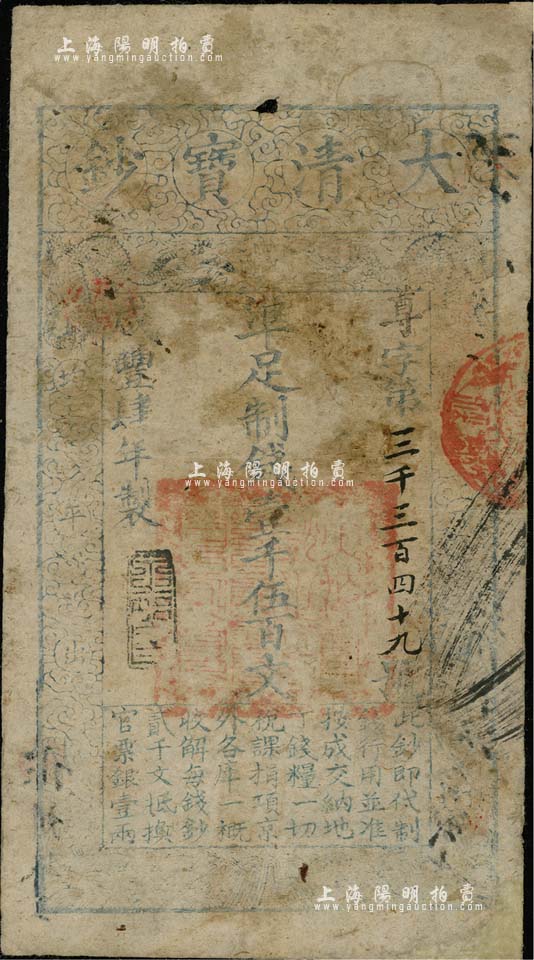 上海陽明拍賣
www.yangmingauction.com
大清寶鈔
尊字第三千三百四十九號
準足制錢壹千伍百文
豐肆年製
此鈔即代制
錢行用並准
按成交納地
丁錢糧一切
稅課捐項京
外各庫一概
收解每錢鈔
貳千文抵換
官票銀壹兩
上海陽明拍賣
www.yangmingauction.com
上海陽明拍賣
www.yangmingauction.com